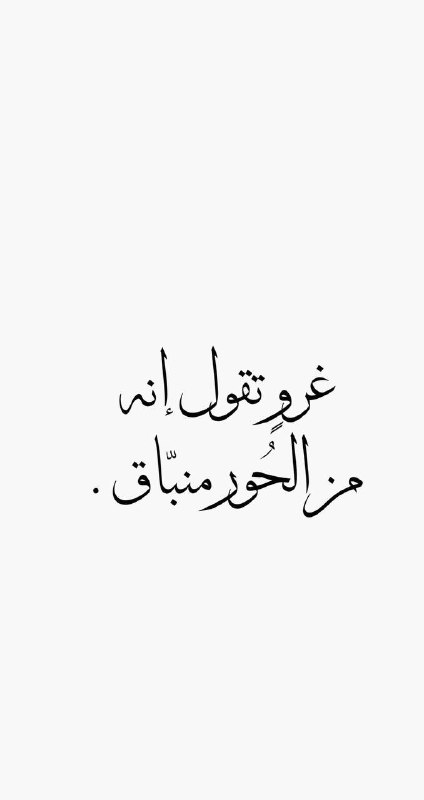 غروٍ تقول إنه
من الحُور منبّاق .